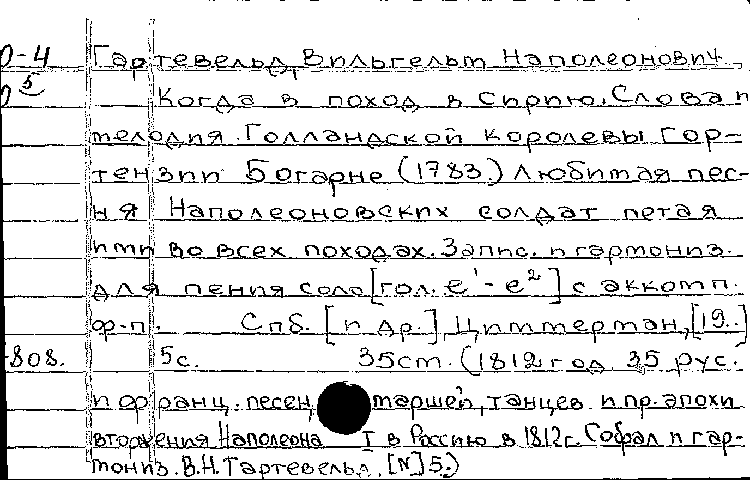 0-4 Гартевельд, Вильгельм Наполеонович.
5 Когда в поход в Сирию. Слова и
мелодия Голландской королевы Гор-
тензии Богарне (1783.) Любимая пес-
ня Наполеоновских солдат петая
ими во всех походах. Запис. и гармониз.
для пения соло [гол. e¹-e²] с аккомп.
ф-п. Спб. [и др.], Циммерман, [19..]
808. 5с. 35см. (1812 год. 35 рус.
и франц. песен, маршей, танцев и пр. эпохи
вторжения Наполеона I в Россию в 1812г. Собрал и гар-
мониз. В.Н. Гартевельд. [N] 5.)